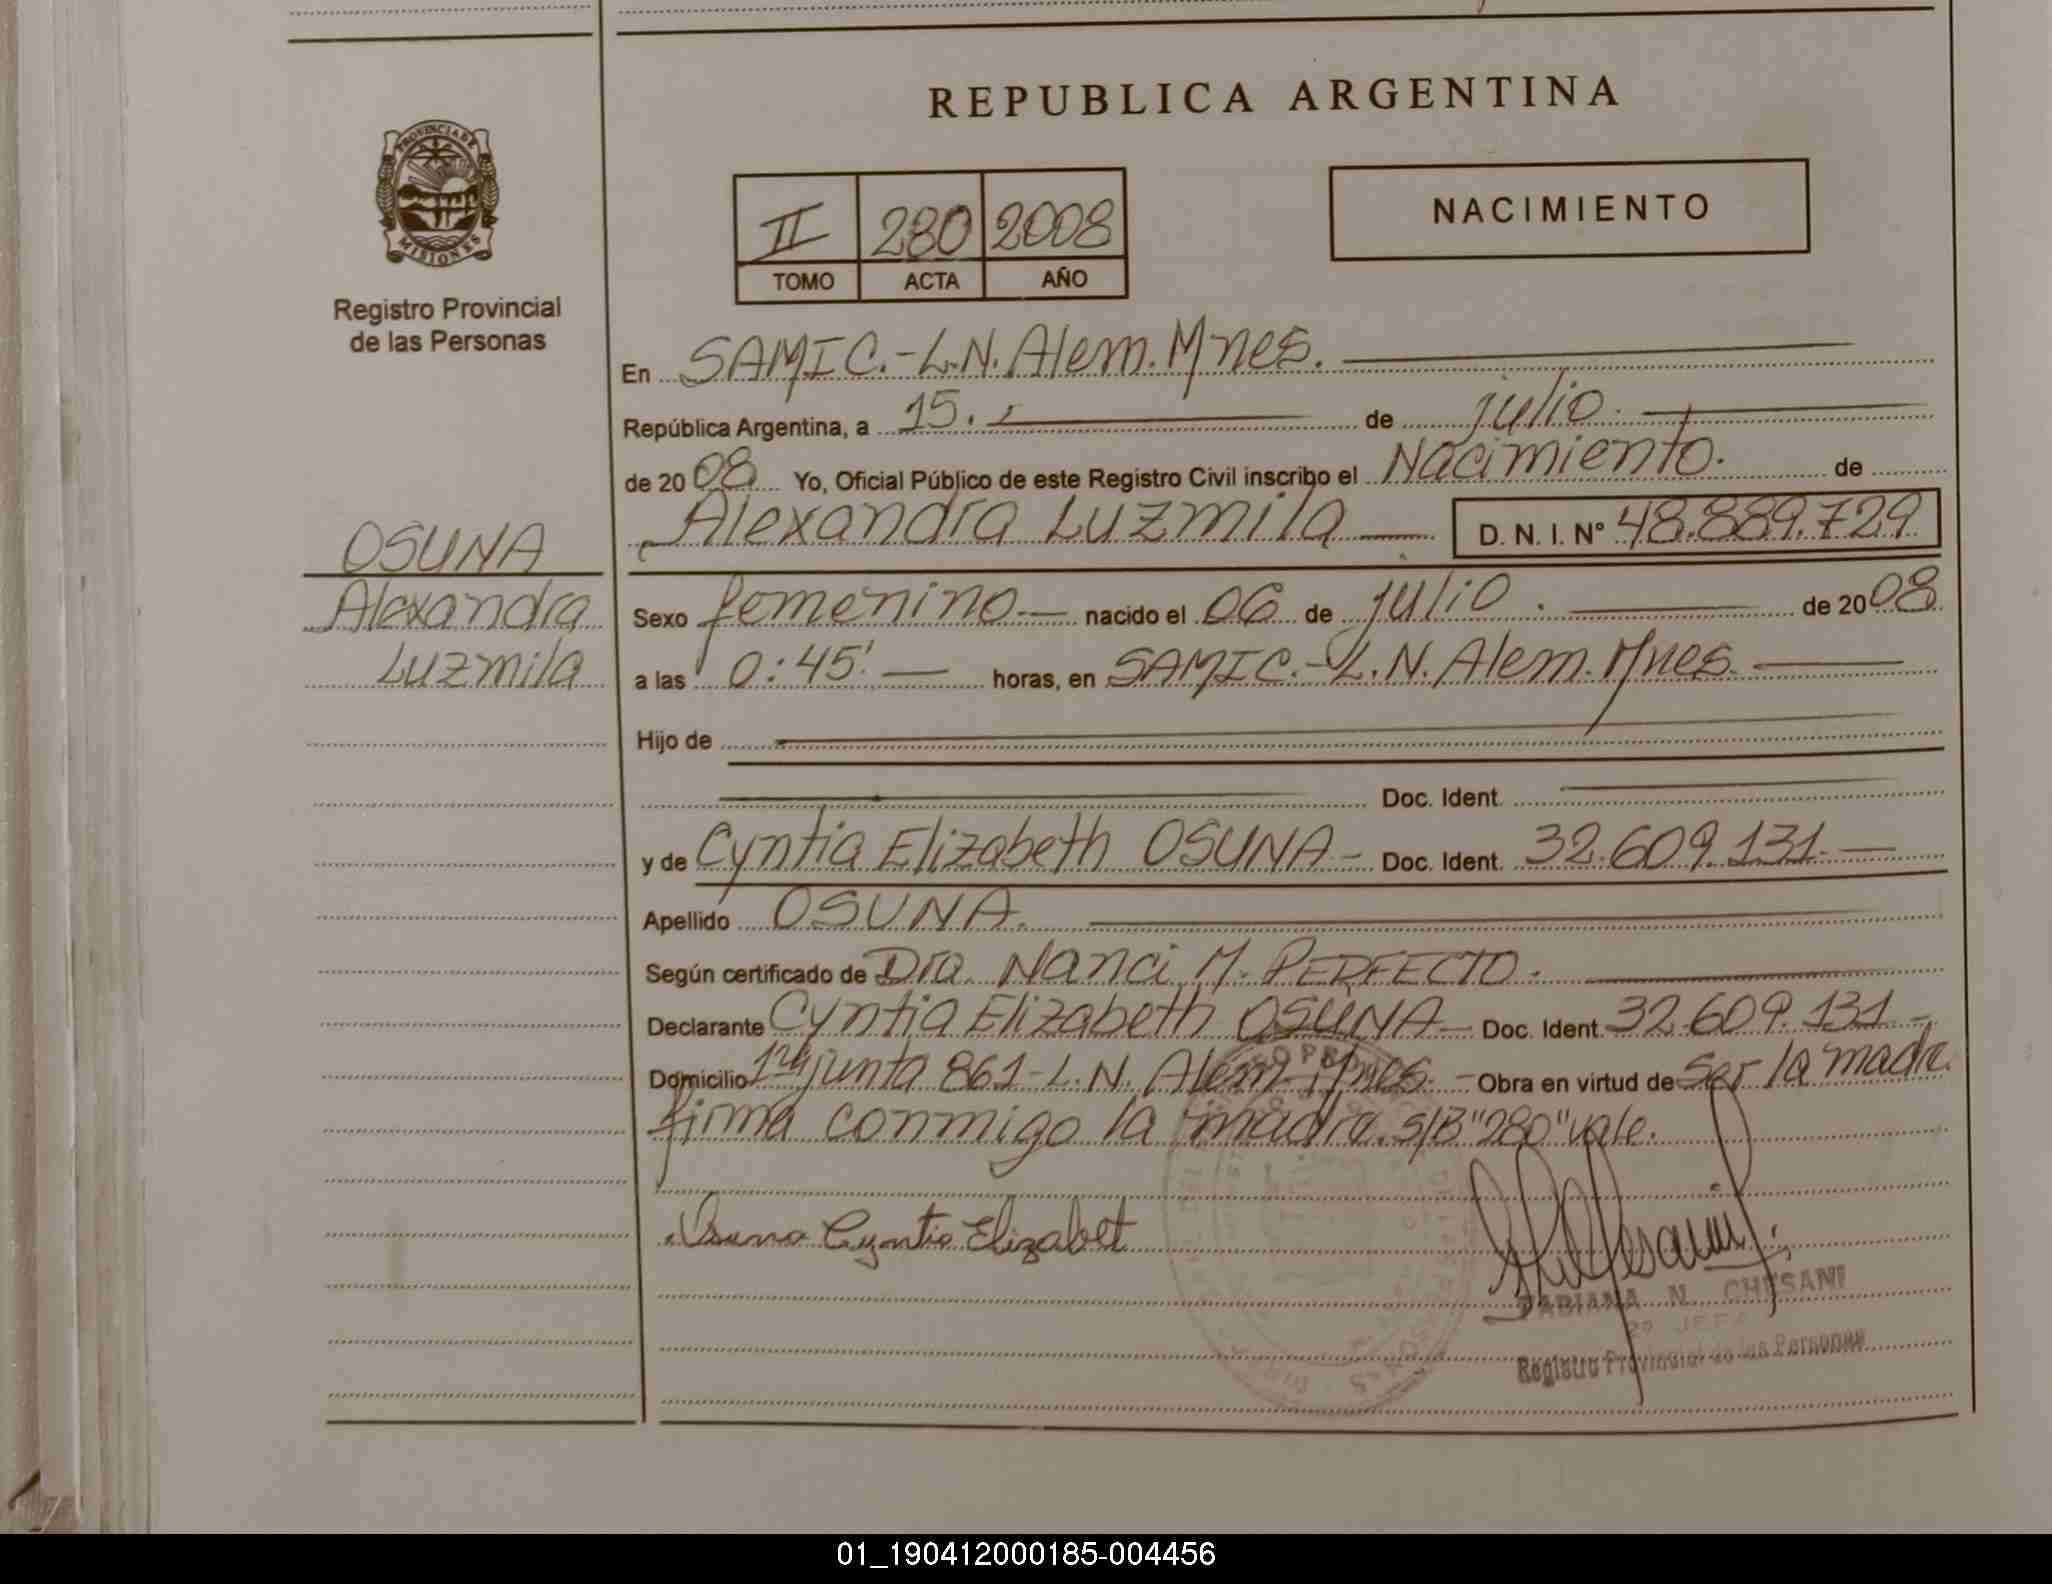 REPUBLICA ARGENTINA
PROVINCIA DE
MISIONES
Registro Provincial
de las Personas
II 280 2008
TOMO ACTA AÑO
NACIMIENTO
En SAMIC.-L.N. Alem. Mnes.
República Argentina, a 15. de julio.
de 2008 Yo, Oficial Público de este Registro Civil inscribo el Nacimiento. de
Alexandra Luzmila D. N. I. N° 48.889.729
OSUNA
Alexandra
Luzmila
Sexo femenino nacido el 06 de julio. de 2008
a las 0:45' horas, en SAMIC.-L.N. Alem. Mnes.
Hijo de
Doc. Ident.
y de Cyntia Elizabeth OSUNA- Doc. Ident. 32.609.131.-
Apellido OSUNA.
Según certificado de Dra. Nanci M. PERFECTO.
Declarante Cyntia Elizabeth OSUNA- Doc. Ident. 32.609.131-
Domicilio 1ra junta 861-L.N. Alem. Mnes. - Obra en virtud de ser la madre.
firma conmigo la madre. S/B "280" vale.
Osuna Cyntia Elizabet
FABIANA N. CHESANI
2° JEFE
Registro Provincial de las Personas
01_190412000185-004456